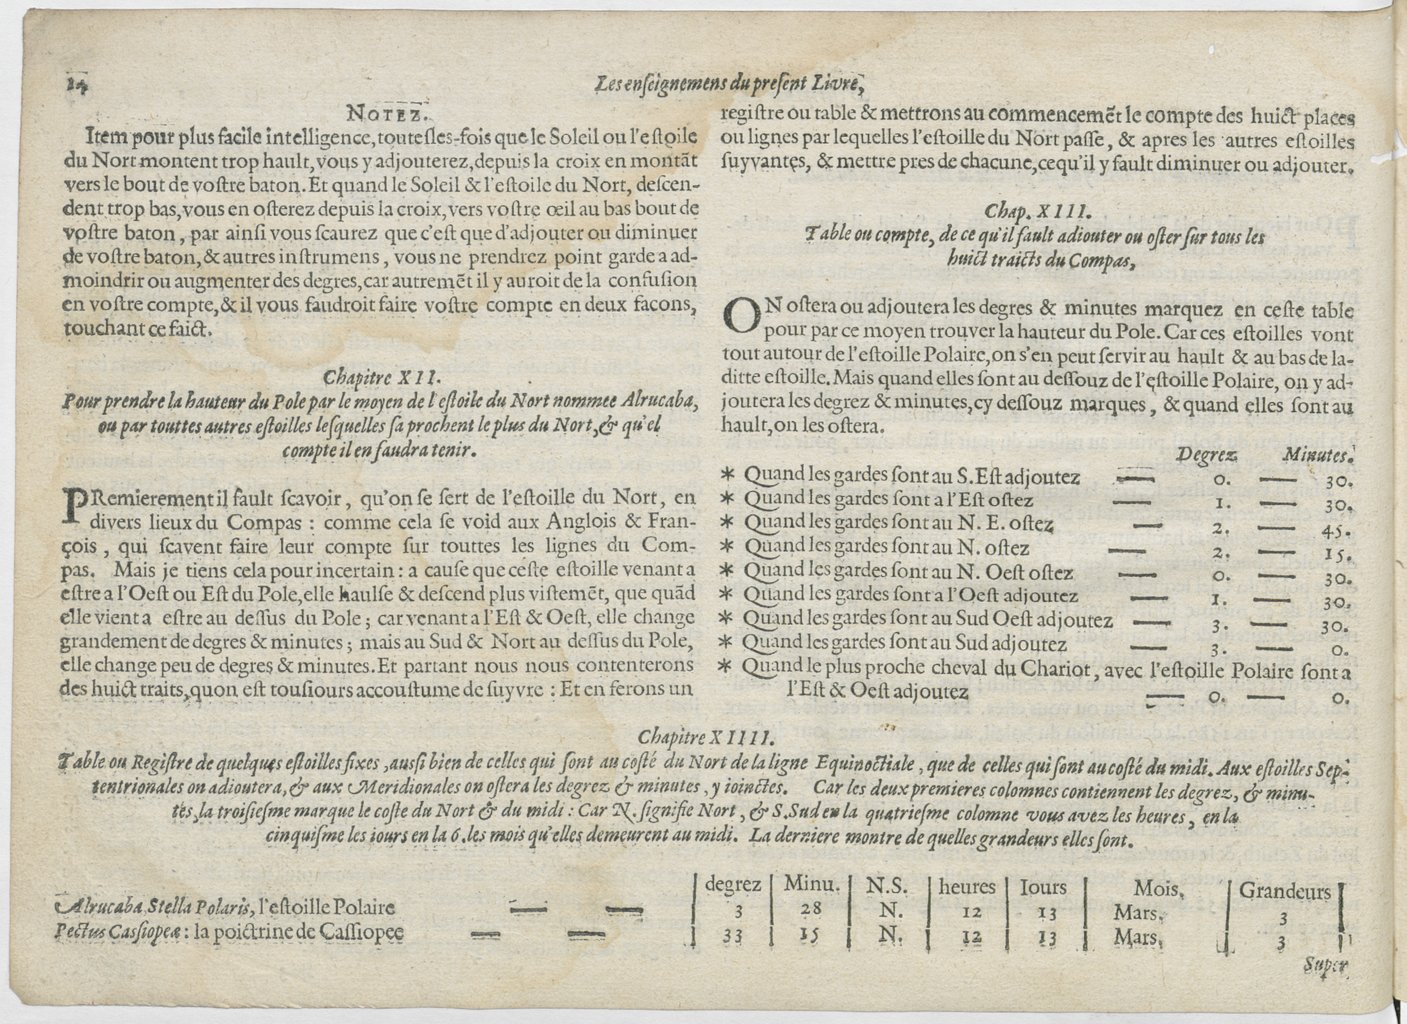 14
Les enſeignemens du preſent Livre,
NOTEZ.
Item pour plus facile intelligence, touteſles-fois que le Soleil ou l'eſtoile
du Nort montent trop hault, vous y adjouterez, depuis la croix en montãt
vers le bout de voſtre baton. Et quand le Soleil & l'eſtoile du Nort, deſcen-
dent trop bas, vous en oſterez depuis la croix, vers voſtre œil au bas bout de
voſtre baton, par ainſi vous ſcaurez que c'eſt que d'adjouter ou diminuer
de voſtre baton, & autres inſtrumens, vous ne prendrez point garde a ad-
moindrir ou augmenter des degres, car autremẽt il y auroit de la confuſion
en voſtre compte, & il vous faudroit faire voſtre compte en deux facons,
touchant ce faict.
Chapitre XII.
Pour prendre la hauteur du Pole par le moyen de l'eſtoile du Nort nommee Alrucaba,
ou par touttes autres eſtoilles leſquelles ſa prochent le plus du Nort, & qu'el
compte il en faudra tenir.
PRemierement il fault ſcavoir, qu'on ſe ſert de l'eſtoille du Nort, en
divers lieux du Compas : comme cela ſe void aux Anglois & Fran-
çois, qui ſcavent faire leur compte ſur touttes les lignes du Com-
pas. Mais je tiens cela pour incertain : a cauſe que ceſte eſtoille venant a
eſtre a l'Oeſt ou Eſt du Pole, elle haulſe & deſcend plus viſtemẽt, que quãd
elle vient a eſtre au deſſus du Pole ; car venant a l'Eſt & Oeſt, elle change
grandement de degres & minutes ; mais au Sud & Nort au deſſus du Pole,
elle change peu de degres & minutes. Et partant nous nous contenterons
des huict traits, quon eſt touſiours accouſtume de ſuyvre : Et en ferons un
regiſtre ou table & mettrons au commencemẽt le compte des huict places
ou lignes par lequelles l'eſtoille du Nort paſſe, & apres les autres eſtoilles
ſuyvantes, & mettre pres de chacune, ce qu'il y fault diminuer ou adjouter.
Chap. XIII.
Table ou compte, de ce qu'il fault adiouter ou oſter ſur tous les
huict traicts du Compas,
ON oſtera ou adjoutera les degres & minutes marquez en ceſte table
pour par ce moyen trouver la hauteur du Pole. Car ces eſtoilles vont
tout autour de l'eſtoille Polaire, on s'en peut ſervir au hault & au bas de la-
ditte eſtoille. Mais quand elles ſont au deſſouz de l'eſtoille Polaire, on y ad-
joutera les degrez & minutes, cy deſſouz marques, & quand elles ſont au
hault, on les oſtera.
Degrez Minutes.
* Quand les gardes ſont au S. Eſt adjoutez — 0. — 30.
* Quand les gardes ſont a l'Eſt oſtez — 1. — 30.
* Quand les gardes ſont au N. E. oſtez — 2. — 45.
* Quand les gardes ſont au N. oſtez — 2. — 15.
* Quand les gardes ſont au N. Oeſt oſtez — 0. — 30.
* Quand les gardes ſont a l'Oeſt adjoutez — 1. — 30.
* Quand les gardes ſont au Sud Oeſt adjoutez — 3. — 30.
* Quand les gardes ſont au Sud adjoutez — 3. — 0.
* Quand le plus proche cheval du Chariot, avec l'eſtoille Polaire ſont a
l'Eſt & Oeſt adjoutez — 0. — 0.
Chapitre XIIII.
Table ou Regiſtre de quelques eſtoilles fixes, auſſi bien de celles qui ſont au coſté du Nort de la ligne Equinoctiale, que de celles qui ſont au coſté du midi. Aux eſtoilles Sep-
tentrionales on adjoutera, & aux Meridionales on oſtera les degrez & minutes, y ioinctes. Car les deux premieres colomnes contiennent les degrez, & minu-
tes, la troiſieſme marque le coſte du Nort & du midi : Car N. ſignifie Nort, & S. Sud en la quatrieſme colomne vous avez les heures, en la
cinquiſme les iours en la 6. les mois qu'elles demeurent au midi. La derniere montre de quelles grandeurs elles ſont.
degrez | Minu. | N.S. | heures | Iours | Mois, | Grandeurs
Alrucaba Stella Polaris, l'eſtoille Polaire — — | 3 | 28 | N. | 12 | 13 | Mars, | 3
Pectus Caſſiopeæ : la poictrine de Caſſiopee — — | 33 | 15 | N. | 12 | 13 | Mars, | 3
Super